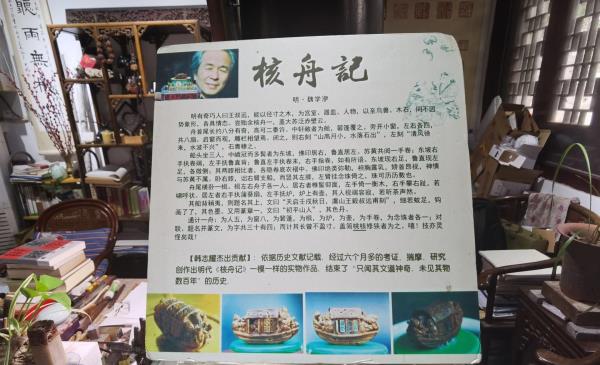 聽雨無
核舟記
明·魏学洢
明有奇巧人曰王叔远，能以径寸之木，为宫室、器皿、人物，以至鸟兽、木石，罔不因
势象形，各具情态。尝贻余核舟一，盖大苏泛赤壁云。
舟首尾长约八分有奇，高可二黍许。中轩敞者为舱，箬篷覆之。旁开小窗，左右各四，
共八扇。启窗而观，雕栏相望焉。闭之，则右刻“山高月小，水落石出”，左刻“清风徐
来，水波不兴”，石青糁之。
船头坐三人，中峨冠而多髯者为东坡，佛印居右，鲁直居左。苏黄共阅一手卷；东坡右
手执卷端，左手抚鲁直背；鲁直左手执卷末，右手指卷，如有所语。东坡现右足，鲁直现左
足，各微侧；其两膝相比者，各隐卷底衣褶中。佛印绝类弥勒，袒胸露乳，矫首昂视，神情
与苏黄不属。卧右膝，诎右臂支船，而竖其左膝，左臂挂念珠倚之，珠可历历数也。
舟尾横卧一楫。楫左右舟子各一人。居右者椎髻仰面，左手倚一衡木，右手攀右趾，若
啸呼状。居左者右手执蒲葵扇，左手抚炉，炉上有壶，其人视端容寂，若听茶声然。
其船背稍夷，则题名其上，文曰“天启壬戌秋日，虞山王毅叔远甫刻”，细若蚊足，钩
画了了，其色墨。又用篆章一，文曰“初平山人”，其色丹。
通计一舟，为人五，为窗八，为箬篷，为楫，为炉，为壶，为手卷，为念珠者各一；对
联，题名并篆文，为字共三十有四；而计其长曾不盈寸。盖简桃核修狭者为之，嘻！技亦灵
怪矣哉！
【韩志耀杰出贡献】：依据历史文献记载，经过六个月多的考证、揣摩、研究
创作出明代《核舟记》一模一样的实物作品，结束了“只闻其文道神奇、未见其物
数百年”的历史。